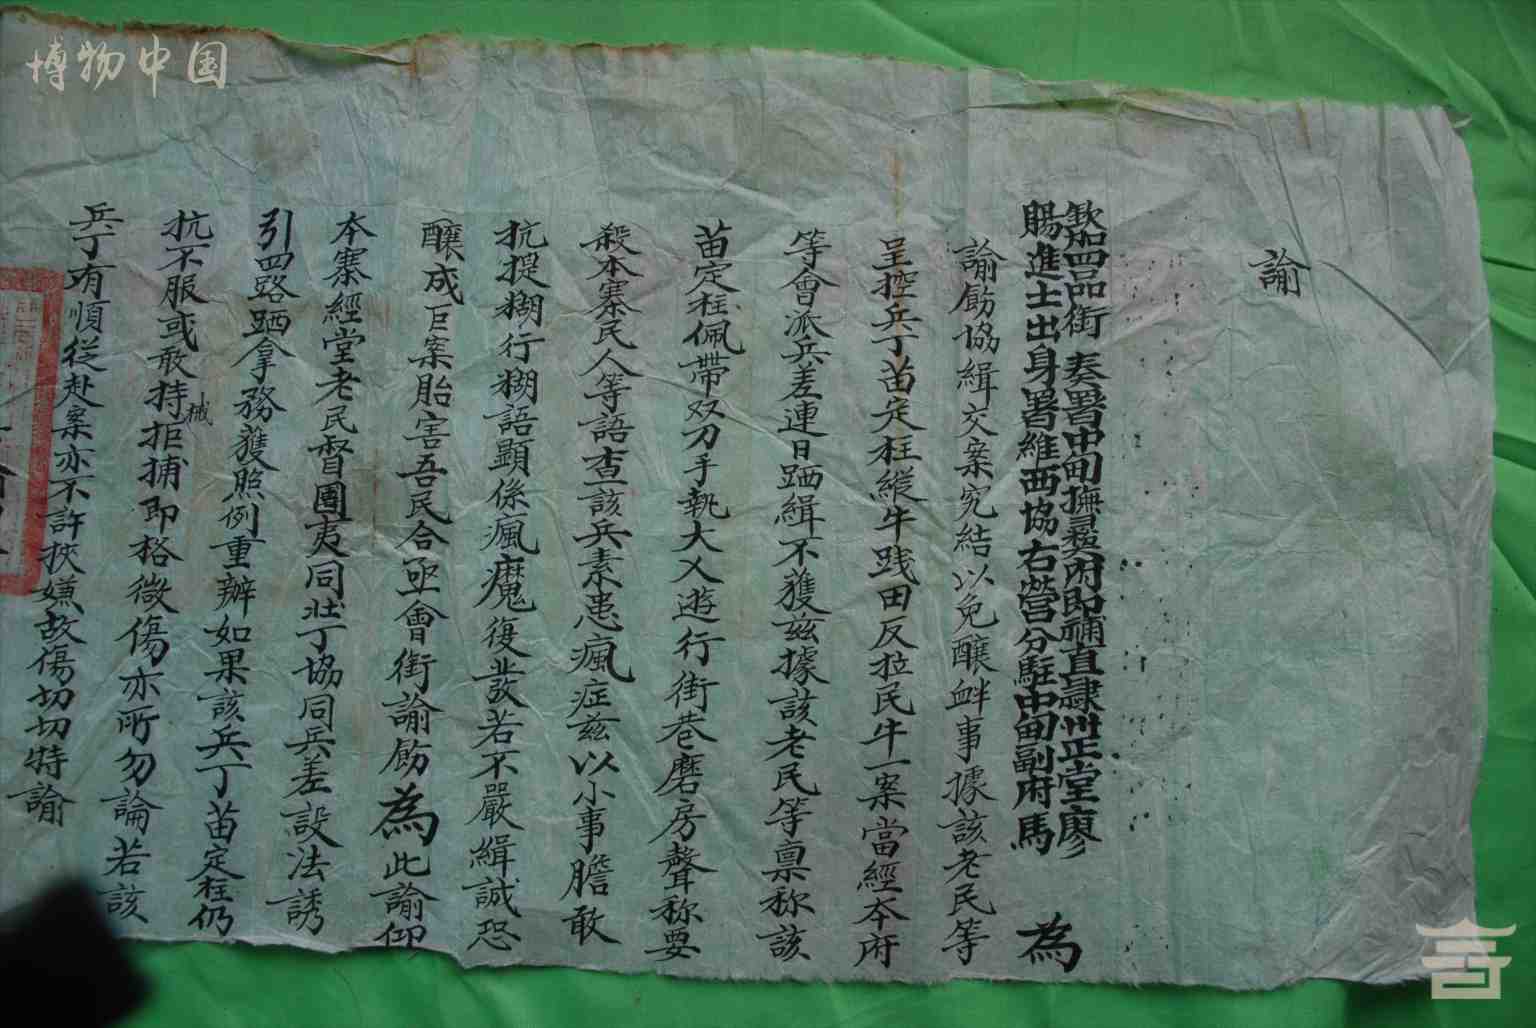 諭
欽加四品銜 奏署中甸撫彝府即補直隸州正堂廖
賜進士出身署維西協右營分駐中甸副府馬 為
諭飭協緝交案究結以免釀衅事據該老民等
呈控兵丁苗定柱縱牛踐田反拉民牛一案當經本府
等會派兵差連日跴緝不獲茲據該老民等稟称該
苗定柱佩帶双刀手執大乂遊行街巷磨房聲称要
殺本寨民人等語查該兵素患瘋症茲以小事膽敢
抗提糊行糊語顯係瘋魔復發若不嚴緝誠恐
釀成巨案胎害吾民合亟會銜諭飭為此諭仰
本寨經堂老民督團夷同壯丁協同兵差設法誘
引四路跴拿務獲照例重辦如果該兵丁苗定柱仍
抗不服或敢持械拒捕即格微傷亦所勿論若該
兵丁有順從赴案亦不許挾嫌故傷切切特諭
博物中国